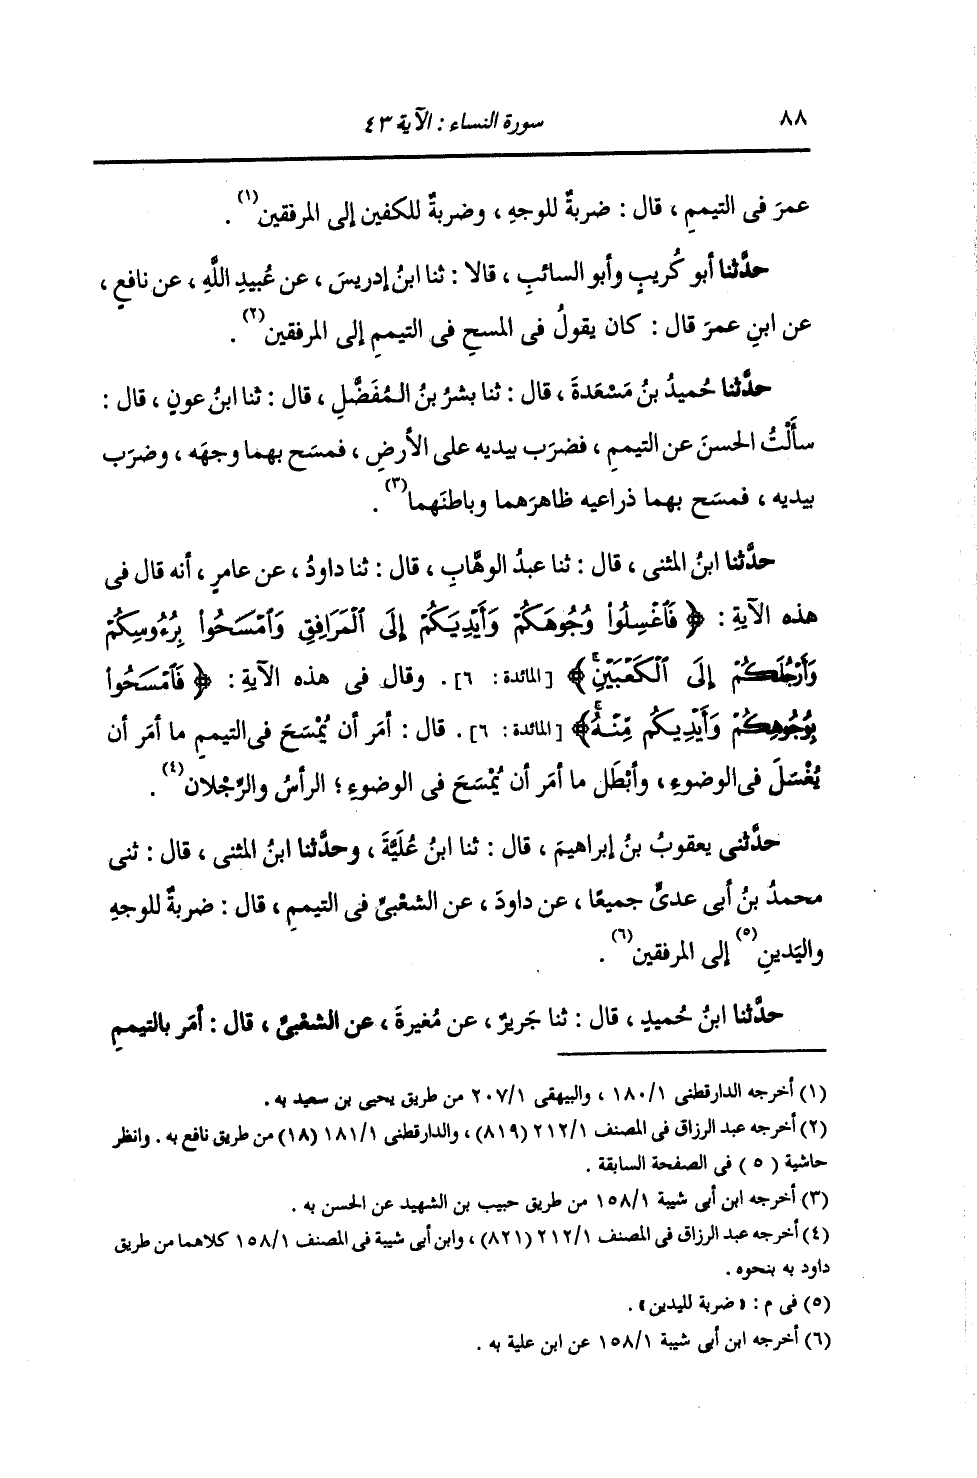 ٨٨
سورة النساء : الآية ٤٣
عمرَ فى التيممِ ، قال : ضربةٌ للوجهِ ، وضربةٌ للكفين إلى المرفقين(١) .
حدَّثنا أبو كُريبٍ وأبو السائبِ ، قالا : ثنا ابنُ إدريسَ ، عن عُبيدِ اللَّهِ ، عن نافعٍ ،
عن ابنِ عمرَ قال : كان يقولُ فى المسحِ فى التيممِ إلى المرفقين(٢) .
حدَّثنا حُميدُ بنُ مَسْعَدةَ ، قال : ثنا بشرُ بنُ المُفَضَّلِ ، قال : ثنا ابنُ عونٍ ، قال :
سأَلْتُ الحسنَ عن التيممِ ، فضرَب بيديه على الأرضِ ، فمسَح بهما وجهَه ، وضرَب
بيديه ، فمسَح بهما ذراعيه ظاهرَهما وباطنَهما(٣) .
حدَّثنا ابنُ المثنى ، قال : ثنا عبدُ الوهَّابِ ، قال : ثنا داودُ ، عن عامرٍ ، أنه قال فى
هذه الآيةِ : ﴿ فَٱغْسِلُوا۟ وُجُوهَكُمْ وَأَيْدِيَكُمْ إِلَى ٱلْمَرَافِقِ وَٱمْسَحُوا۟ بِرُءُوسِكُمْ
وَأَرْجُلَكُمْ إِلَى ٱلْكَعْبَيْنِ ۚ﴾ [المائدة : ٦] . وقال فى هذه الآيةِ : ﴿ فَٱمْسَحُوا۟
بِوُجُوهِكُمْ وَأَيْدِيكُم مِّنْهُ ۚ﴾ [المائدة : ٦] . قال : أمَر أن يُمْسَحَ فى التيممِ ما أمَر أن
يُغْسَلَ فى الوضوءِ ، وأبْطَل ما أمَر أن يُمْسَحَ فى الوضوءِ ؛ الرأسُ والرِّجْلان(٤) .
حدَّثنى يعقوبُ بنُ إبراهيمَ ، قال : ثنا ابنُ عُلَيَّةَ ، وحدَّثنا ابنُ المثنى ، قال : ثنى
محمدُ بنُ أبى عدىٍّ جميعًا ، عن داودَ ، عن الشعْبىِّ فى التيممِ ، قال : ضربةٌ للوجهِ
واليَدينِ(٥) إلى المرفقين(٦) .
حدَّثنا ابنُ حُميدٍ ، قال : ثنا جَريرٌ ، عن مُغيرةَ ، عن الشعْبىِّ ، قال : أمَر بالتيممِ
(١) أخرجه الدارقطنى ١/ ١٨٠ ، والبيهقى ١/ ٢٠٧ من طريق يحيى بن سعيد به .
(٢) أخرجه عبد الرزاق فى المصنف ١/ ٢١٢ (٨١٩) ، والدارقطنى ١/ ١٨١ (١٨) من طريق نافع به . وانظر
حاشية ( ٥ ) فى الصفحة السابقة .
(٣) أخرجه ابن أبى شيبة ١/ ١٥٨ من طريق حبيب بن الشهيد عن الحسن به .
(٤) أخرجه عبد الرزاق فى المصنف ١/ ٢١٢ (٨٢١) ، وابن أبى شيبة فى المصنف ١/ ١٥٨ كلاهما من طريق
داود به بنحوه .
(٥) فى م : « ضربة لليدين » .
(٦) أخرجه ابن أبى شيبة ١/ ١٥٨ عن ابن علية به .